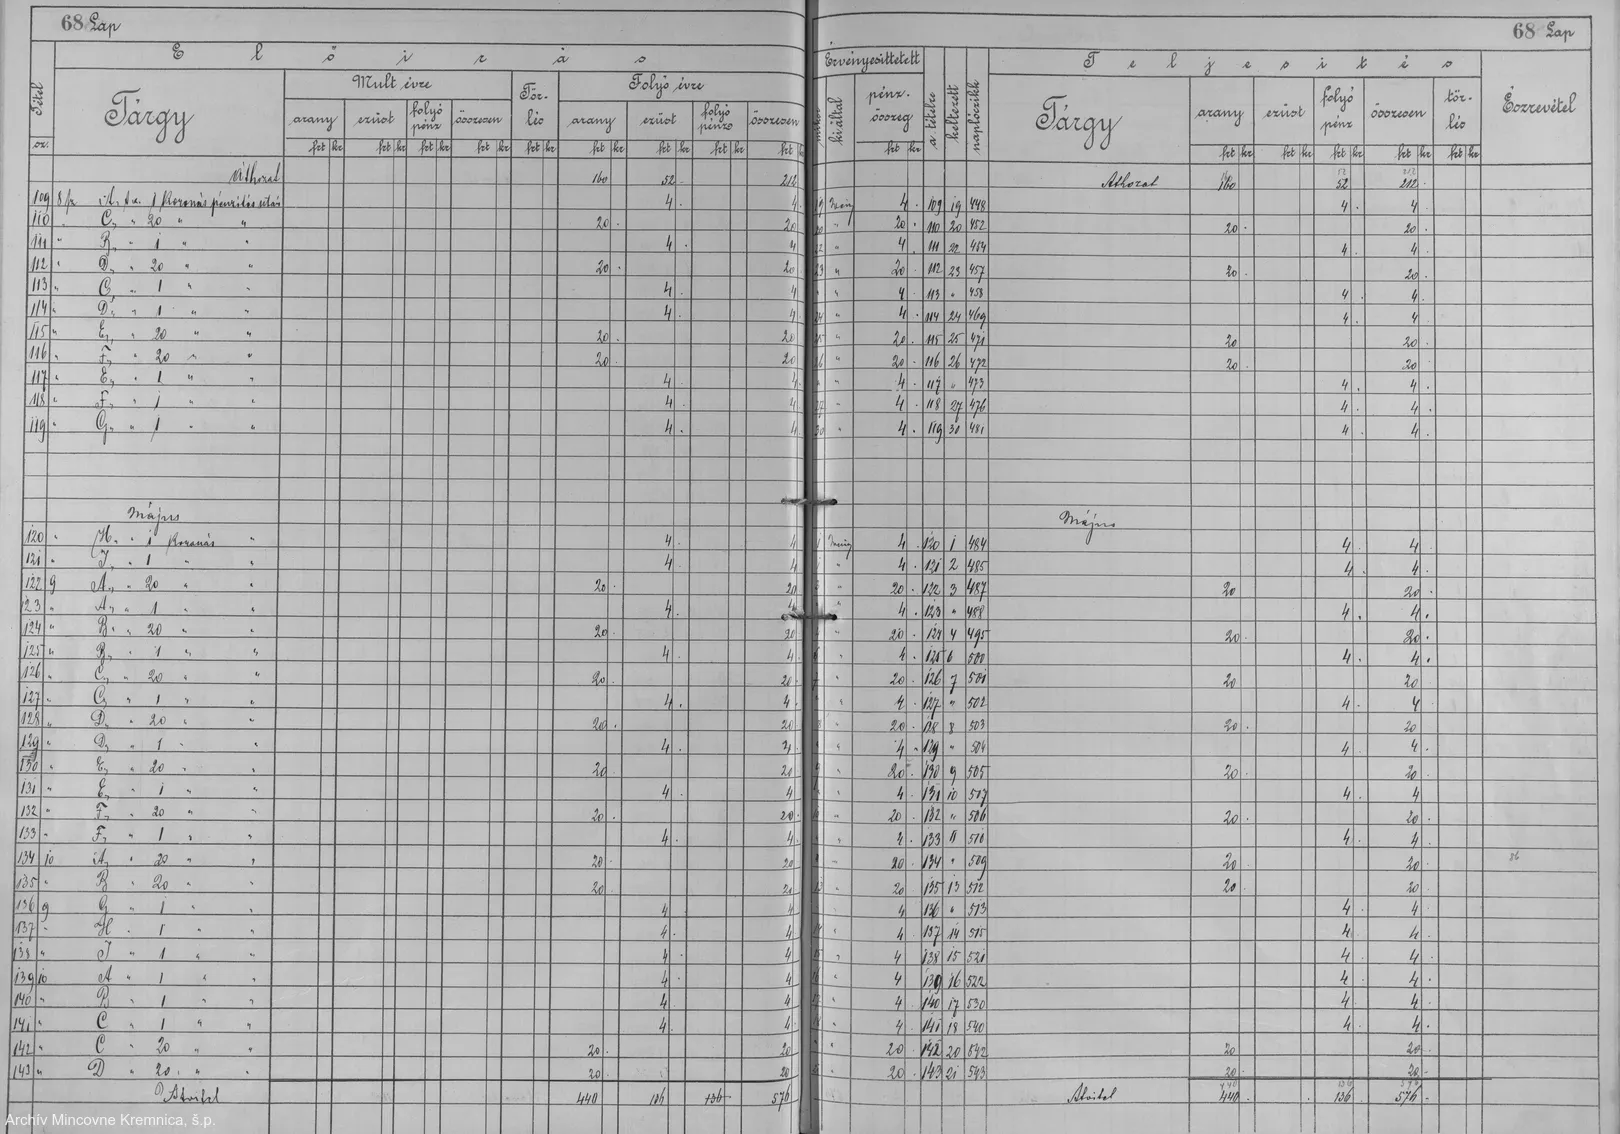 68 Lap
Előirás
Tétel sz.
Tárgy
Mult évre
Tör-lés
Folyó évre
arany ezüst folyó pénz összesen
arany ezüst folyó pénz összesen
frt kr frt kr frt kr frt kr frt kr frt kr frt kr frt kr frt kr
Áthozat 160 52 212
109 8/ A, 1 Koronás pénzítés után 4 4
110 " C, " 20 " " 20 20
111 " B, " 1 " " 4 4
112 " D, " 20 " " 20 20
113 " C, " 1 " " 4 4
114 " D, " 1 " " 4 4
115 " E, " 20 " " 20 20
116 " F, " 20 " " 20 20
117 " E, " 1 " " 4 4
118 " F, " 1 " " 4 4
119 " G, " 1 " " 4 4
Május
120 " H, " 1 Koronás " 4 4
121 " I, " 1 " " 4 4
122 9 A, " 20 " " 20 20
123 " A, " 1 " " 4 4
124 " B, " 20 " " 20 20
125 " B, " 1 " " 4 4
126 " C, " 20 " " 20 20
127 " C, " 1 " " 4 4
128 " D, " 20 " " 20 20
129 " D, " 1 " " 4 4
130 " E, " 20 " " 20 20
131 " E, " 1 " " 4 4
132 " F, " 20 " " 20 20
133 " F, " 1 " " 4 4
134 10 A, " 20 " " 20 20
135 " B " 20 " " 20 20
136 9 G " 1 " " 4 4
137 " H " 1 " " 4 4
138 " I " 1 " " 4 4
139 10 A " 1 " " 4 4
140 " B " 1 " " 4 4
141 " C " 1 " " 4 4
142 " C " 20 " " 20 20
143 " D " 20 " " 20 20
Átvitel 440 136 136 576
68 Lap
Érvényesíttetett
mikor
ki által
pénz-összeg
a tételre
keltezett
naplóczikk
Teljesítés
Tárgy
arany ezüst folyó pénz összesen tör-lés
Észrevétel
frt kr frt kr frt kr frt kr frt kr frt kr
Áthozat 160 52 212
19 4 109 19 448 4 4
20 " 20 110 20 452 20 20
22 " 4 111 22 454 4 4
23 " 20 112 23 457 20 20
" " 4 113 " 458 4 4
24 " 4 114 24 469 4 4
25 " 20 115 25 471 20 20
26 " 20 116 26 472 20 20
" " 4 117 " 473 4 4
27 " 4 118 27 476 4 4
30 " 4 119 30 481 4 4
Május
1 4 120 1 484 4 4
" 4 121 2 485 4 4
" 20 122 3 487 20 20
" 4 123 " 488 4 4
" 20 124 4 495 20 20
" 4 125 6 500 4 4
" 20 126 7 501 20 20
" 4 127 " 502 4 4
8 " 20 128 8 503 20 20
" 4 129 " 504 4 4
9 " 20 130 9 505 20 20
" 4 131 10 507 4 4
" 20 132 " 506 20 20
" 4 133 11 510 4 4
" 20 134 " 509 20 20
13 " 20 135 13 512 20 20
" 4 136 " 513 4 4
14 " 4 137 14 515 4 4
15 " 4 138 15 521 4 4
16 " 4 139 16 522 4 4
17 " 4 140 17 530 4 4
" 4 141 18 540 4 4
" 20 142 20 542 20 20
" 20 143 21 543 20 20
Átvitel 440 136 576
Archív Mincovne Kremnica, š.p.